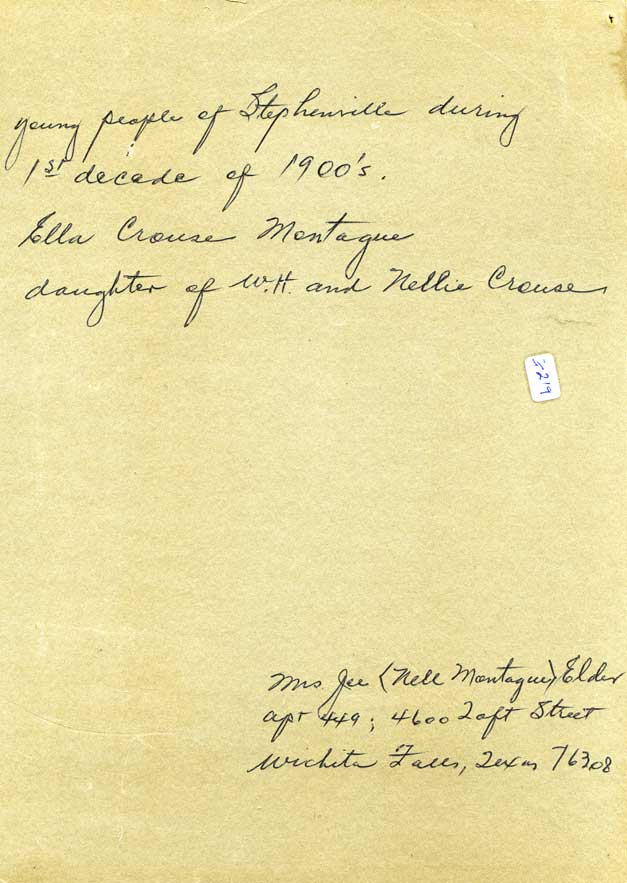 young people of Stephenville during
1st decade of 1900's.
Ella Crouse Montague
daughter of W.H. and Nellie Crouse
Mrs Joe (Nell Montague) Elder
apt 449; 4600 Taft Street
Wichita Falls, Texas 76308